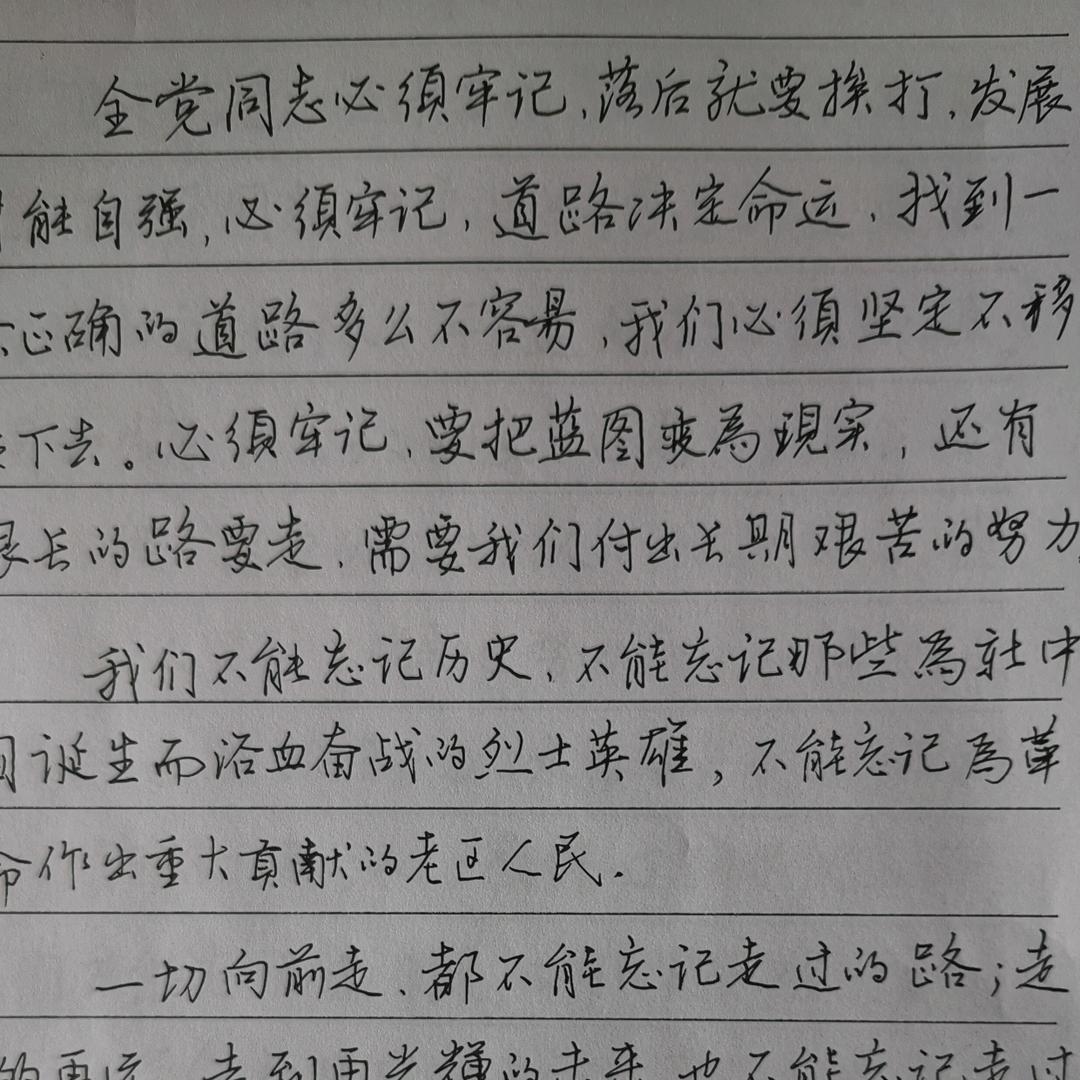 全党同志必须牢记,落后就要挨打,发展
能自强,必须牢记,道路决定命运,找到一
正确的道路多么不容易,我们必须坚定不移
下去。必须牢记,要把蓝图变為現实,还有
很长的路要走,需要我们付出长期艰苦的努力
我们不能忘记历史,不能忘记那些為新中
国诞生而浴血奋战的烈士英雄,不能忘记為革
命作出重大贡献的老区人民.
一切向前走,都不能忘记走过的路;走
的再远,走到再光辉的未来,也不能忘记走过